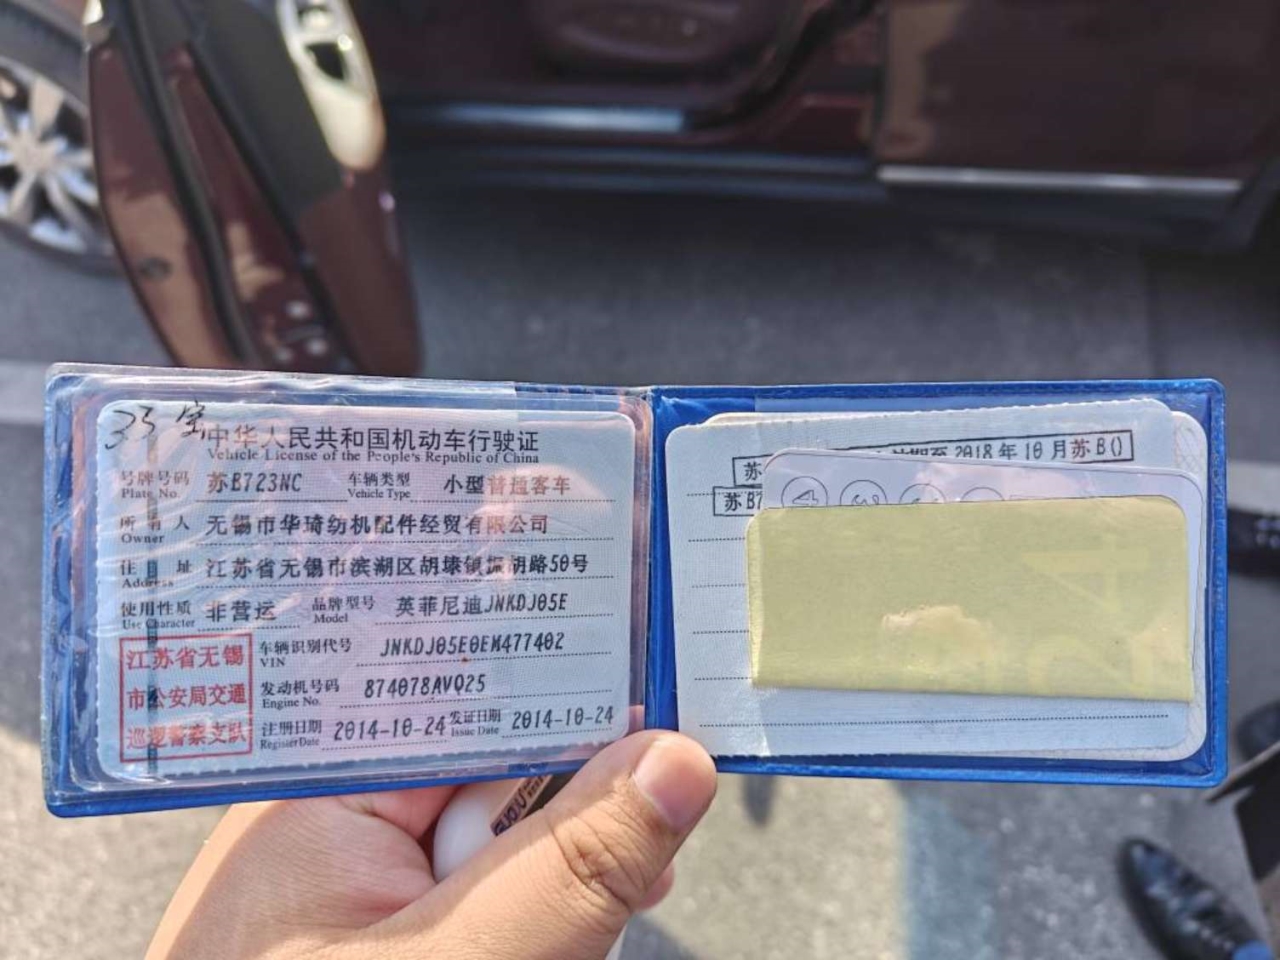 33 宝
中华人民共和国机动车行驶证
Vehicle License of the People's Republic of China
号牌号码 苏B723NC 车辆类型 小型普通客车
Plate No. Vehicle Type
所有人 无锡市华琦纺机配件经贸有限公司
Owner
住址 江苏省无锡市滨湖区胡埭镇振胡路50号
Address
使用性质 非营运 品牌型号 英菲尼迪JNKDJ05E
Use Character Model
江苏省无锡
市公安局交通
巡逻警察支队
车辆识别代号 JNKDJ05E0EM477402
VIN
发动机号码 874078AVQ25
Engine No.
注册日期 2014-10-24 发证日期 2014-10-24
Register Date Issue Date
苏 期至 2018年10月苏B()
苏B7
4 3